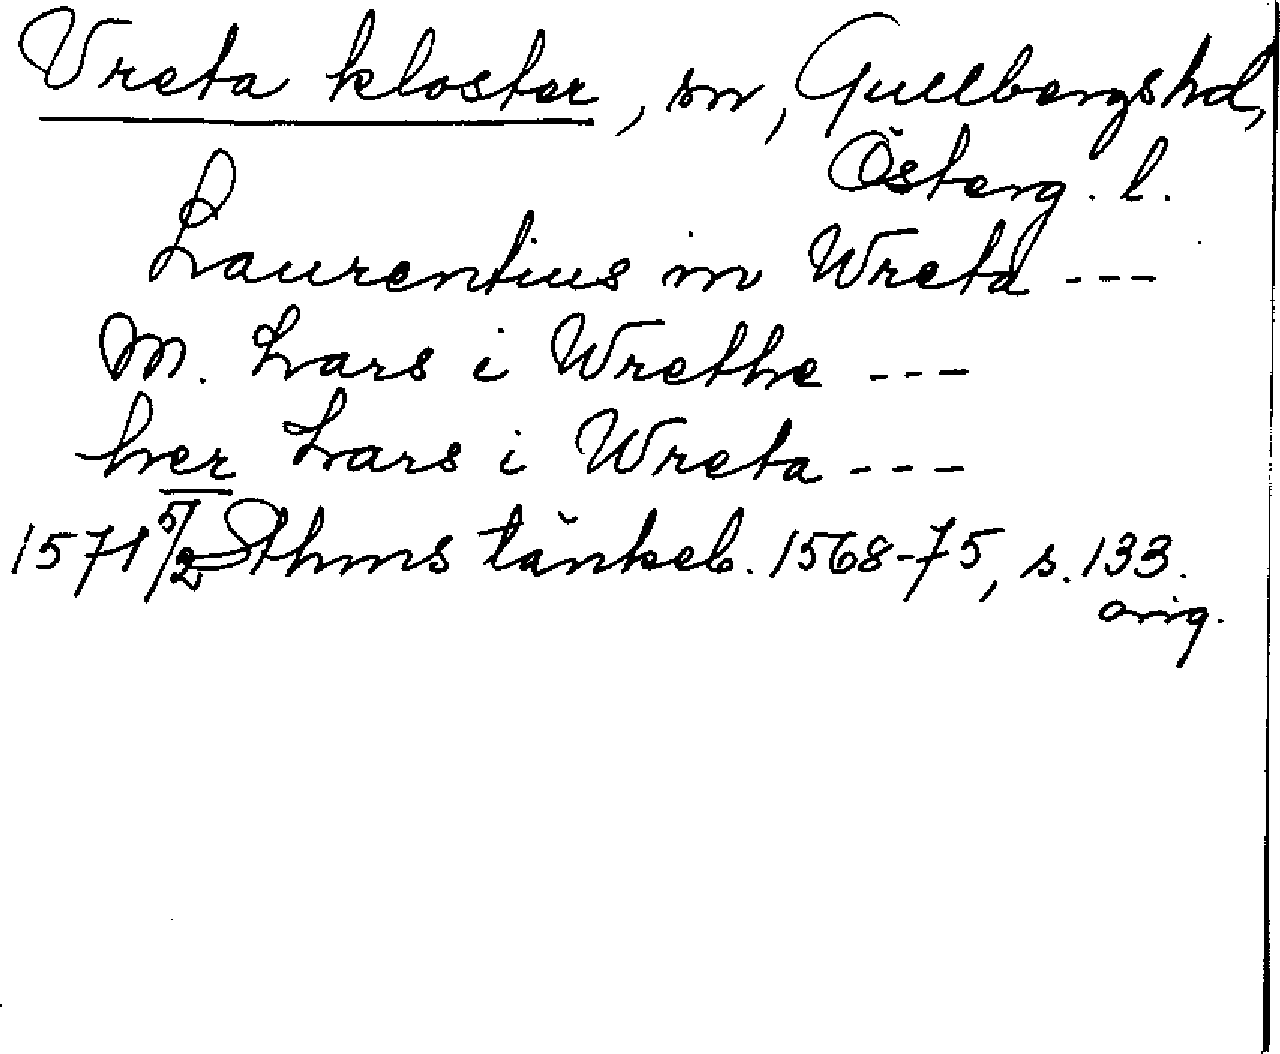 Vreta kloster, sn, Gullbergshd,
Österg. l.
Laurentius in Wreta ---
M. Lars i Wrethe ---
her Lars i Wreta ---
1571 5/2 Sthms tänkeb. 1568-75, s. 133.
orig.